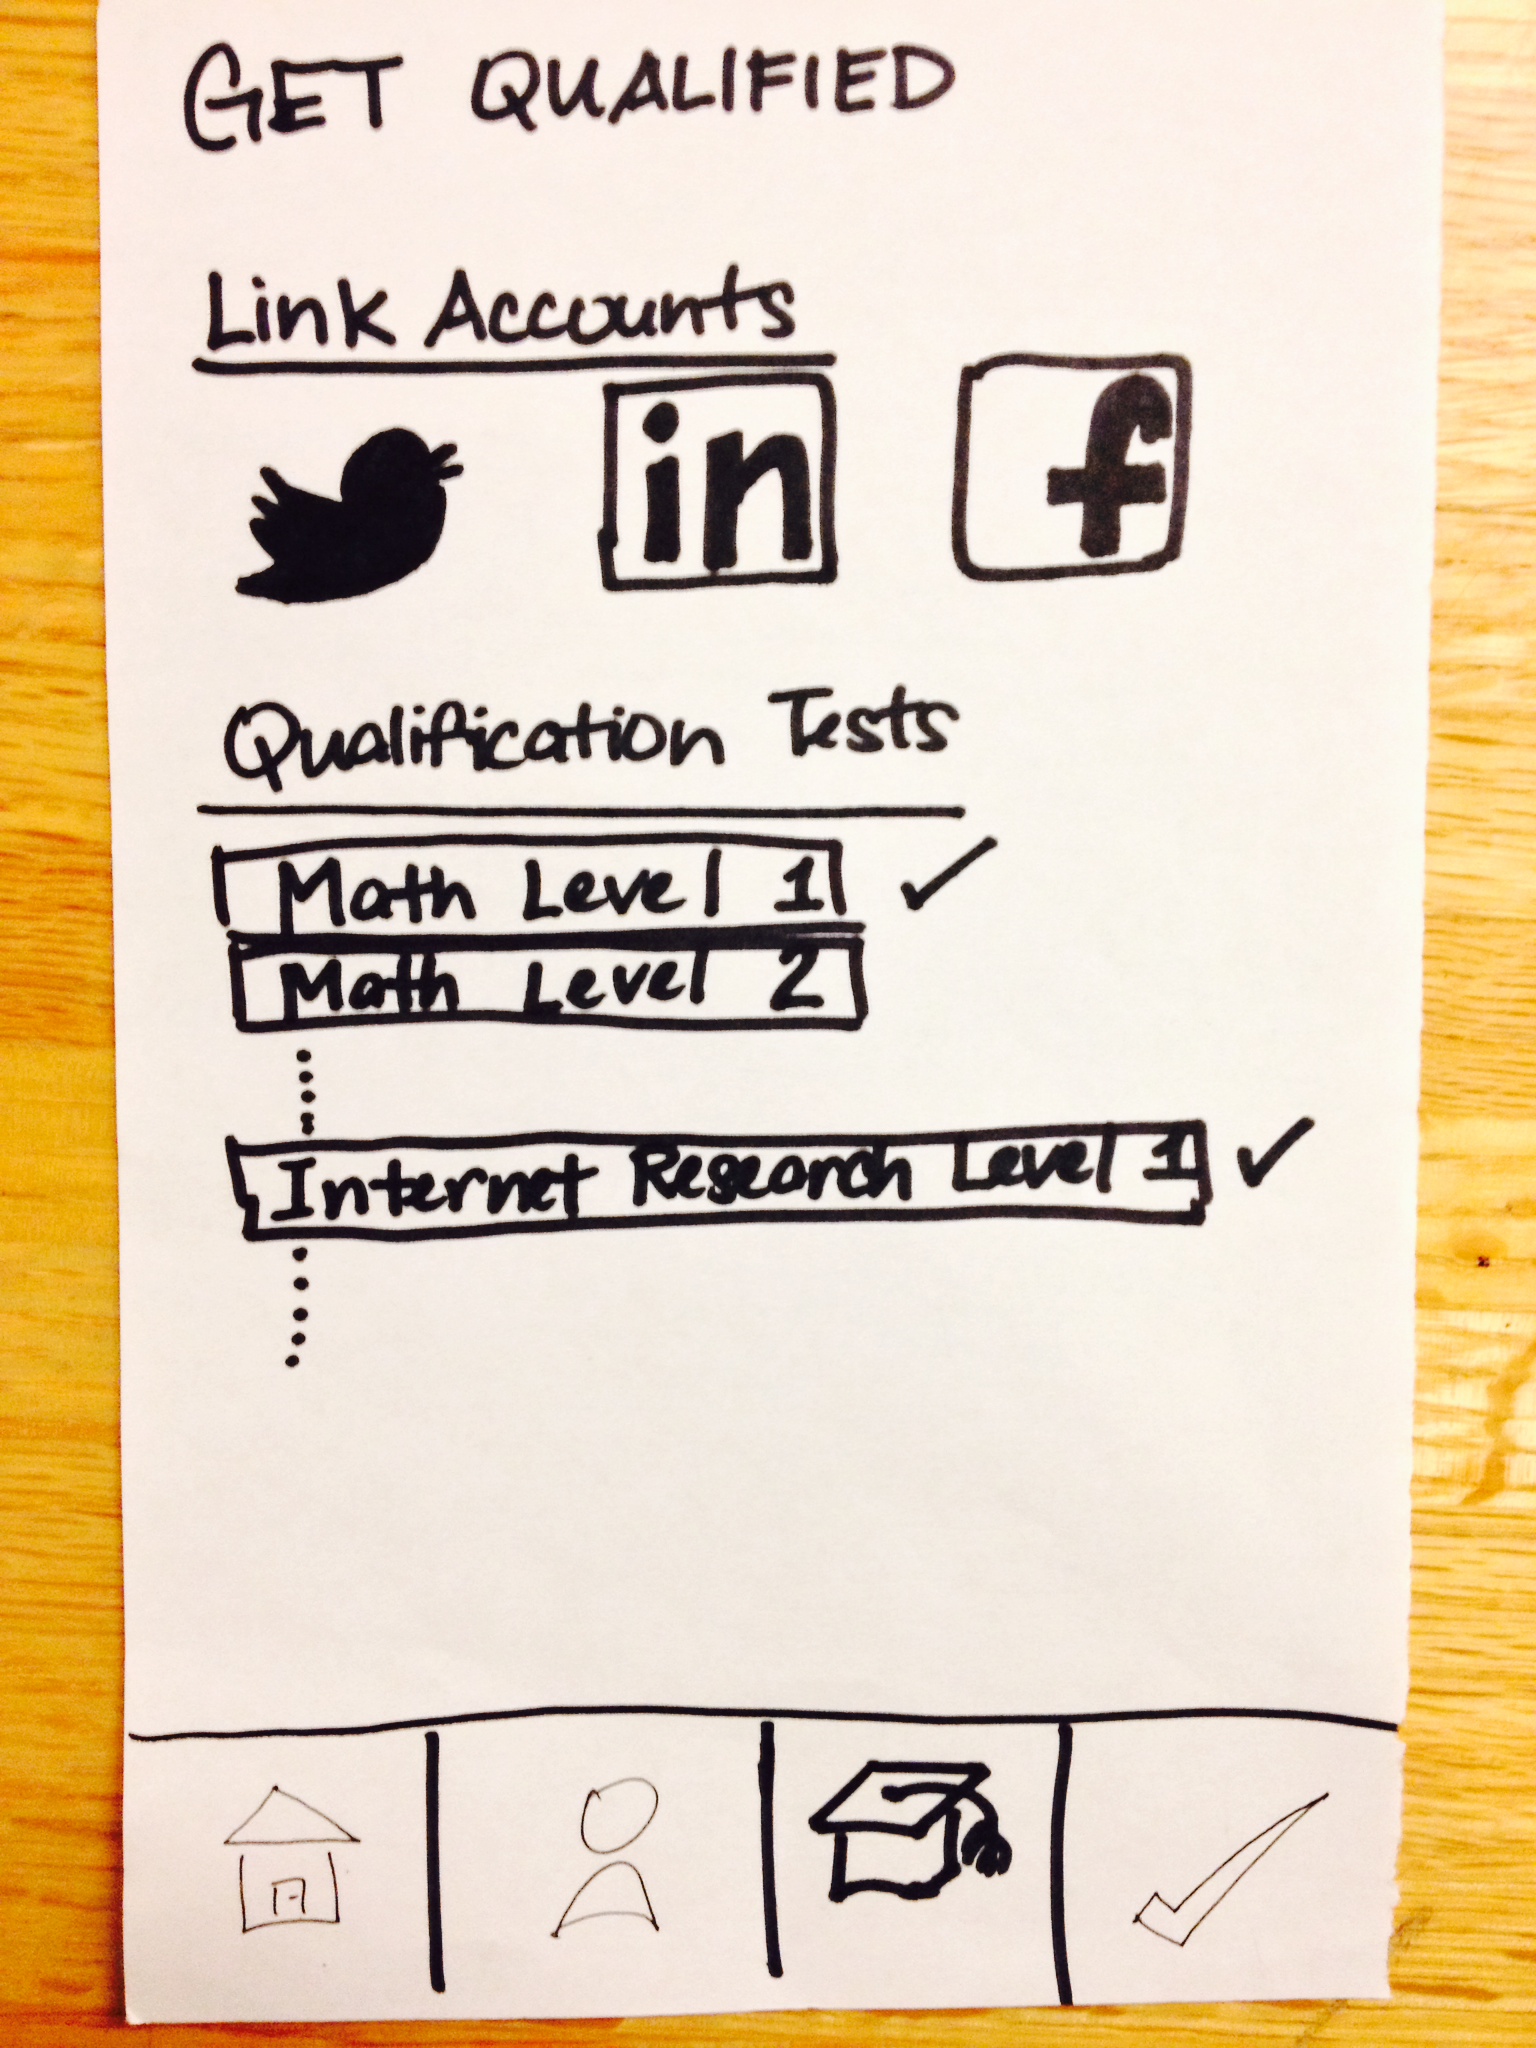 GET QUALIFIED
Link Accounts
in f
Qualification Tests
Math Level 1
Math Level 2
Internet Research Level 1